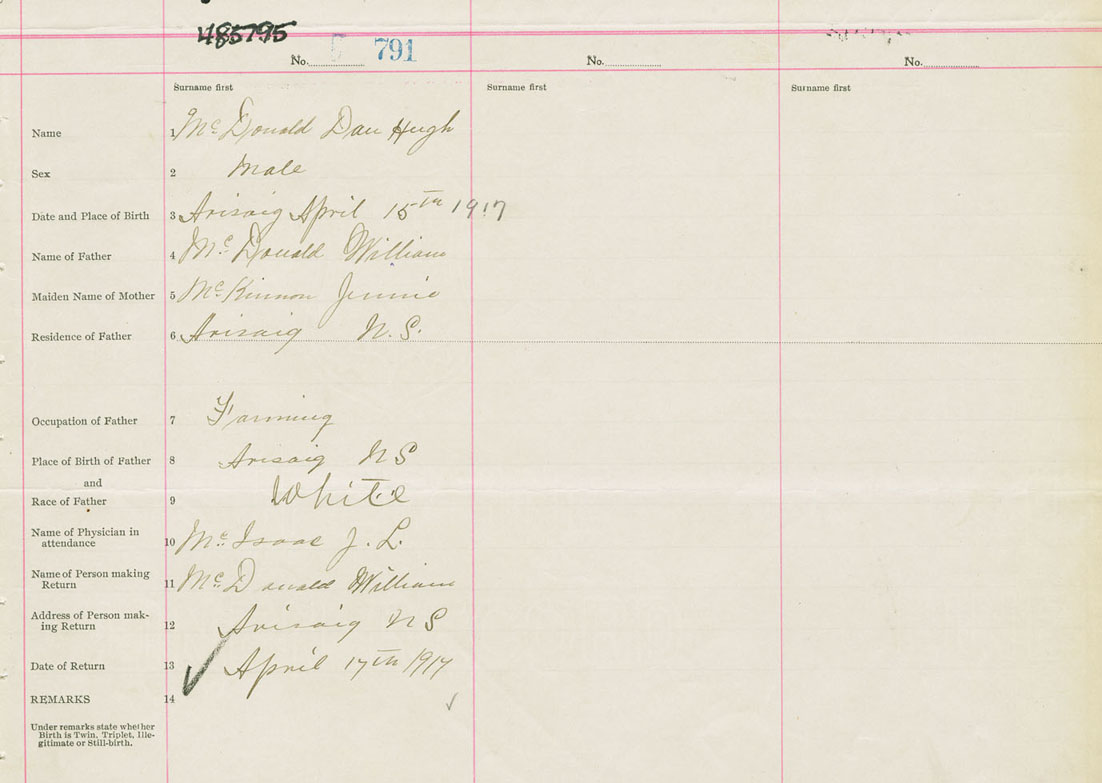 485795
No. 5 791
No.
No.
Surname first
Surname first
Surname first
Name 1 Mc Donald Dan Hugh
Sex 2 Male
Date and Place of Birth 3 Arisaig April 15th 1917
Name of Father 4 Mc Donald William
Maiden Name of Mother 5 Mc Kinnon Jennie
Residence of Father 6 Arisaig N.S.
Occupation of Father 7 Farming
Place of Birth of Father 8 Arisaig NS
and
Race of Father 9 White
Name of Physician in
attendance 10 Mc Isaac J. L.
Name of Person making
Return 11 Mc Donald William
Address of Person mak-
ing Return 12 Arisaig NS
Date of Return 13 April 17th 1917
REMARKS 14
Under remarks state whether
Birth is Twin, Triplet, Ille-
gitimate or Still-birth.